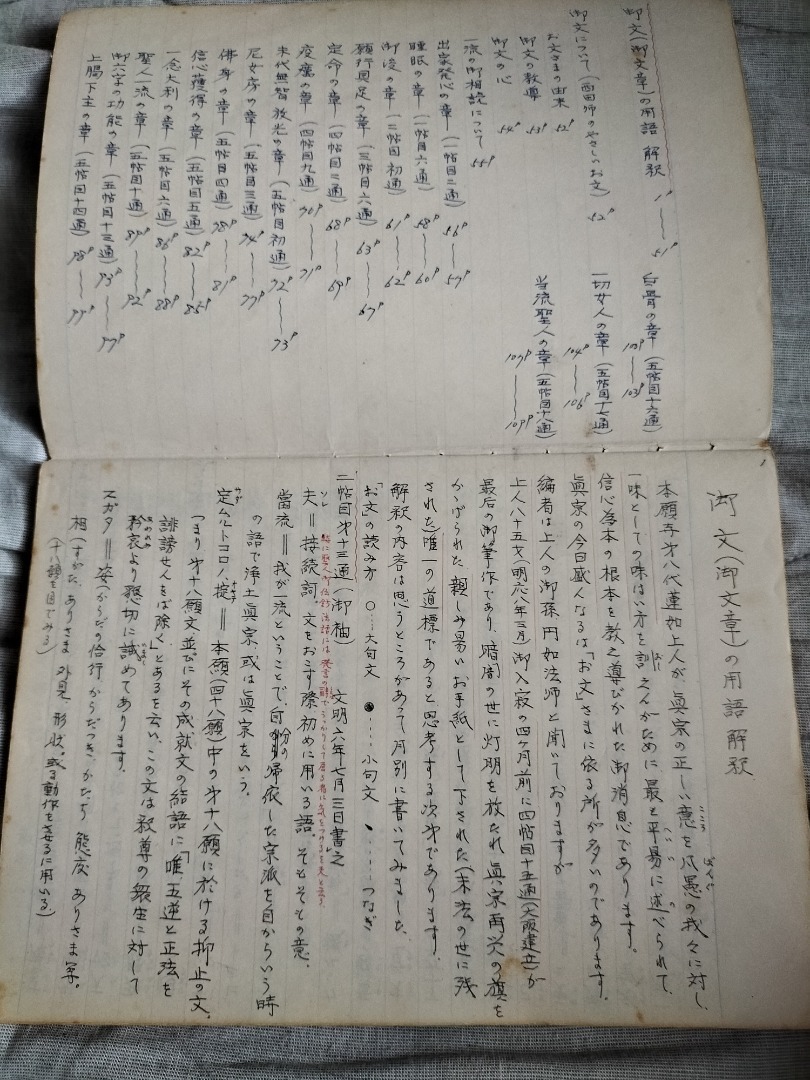 御文(御文章)の用語 解釈 1P〜51P
御文について (西田师のやさしいお文) 52P
お文さまの由来 52P
御文の教導 53P
御文の心 54P
一流の御相談について 55P
出家発心の章 (一帖目二通) 56P〜57P
睡眠の章 (一帖目六通) 58P〜60P
御浚の章 (二帖目初通) 61P〜62P
願行具足の章 (三帖目六通) 63P〜67P
定命の章 (四帖目二通) 68P〜69P
疫癘の章 (四帖目九通) 70P〜71P
末代無智 放光の章 (五帖目初通) 72P〜73P
尼女房の章 (五帖目三通) 74P〜77P
佛身の章 (五帖目四通) 78P〜81P
信心獲得の章 (五帖目五通) 82P〜85P
一念大利の章 (五帖目六通) 86P〜88P
聖人一流の章 (五帖目十通) 89P〜92P
御六字の功能の章 (五帖目十三通) 93P〜97P
上臈下主の章 (五帖目十四通) 98P〜99P
白骨の章 (五帖目十六通) 103P
一切女人の章 (五帖目十七通) 104P〜106P
当流聖人の章 (五帖目十八通) 107P〜109P
1
御文(御文章)の用語解釈
本願寺才八代蓮如上人が、眞宗の正しい意を凡愚の我々に対し、
一味としての味はい方を訓えんがために、最と平易に述べられて、
信心為本の根本を教え導びかれた御消息であります。
眞宗の今日盛んなるは「お文」さまに依る所が多いのであります。
編者は上人の御孫円如法师と聞いておりますが
上人八十五才(明応八年三月)御入寂の四ヶ月前に四帖目十五通(大阪建立)が
最后の御筆作であり、暗闇の世に灯明を放たれ眞宗再次の旗を
かゝげられた、親しみ易いお手紙として下された(末法の世に残
された)唯一の道標であると思考する次才であります。
解釈の内容は思うところがあって月別に書いてみました
「お文」の読み方 〇…大句文 ●…小句文 、……つなぎ
二帖目才十三通(御袖) 文明六年七月三日書之
夫=接続詞。文をおこす際初めに用いる語。そもそもの意。
當流=我が一流ということで、自分の帰依した宗派を自からいう時
の語で浄土眞宗、或は眞宗をいう。
定ムルトコロノ掟=本願(四十八願)中の才十八願に於ける抑止の文。
つまり才十八願文並びにその成就文の結語に「唯、五逆と正法を
誹謗せんをば除く」とあるを云い、この文は釈尊の衆生に対して
矜哀より懇切に誡めてあります。
スガタ=姿(からだの恰行 からだつき、かたち 態度 ありさま 等。
相(すがた、ありさま 外見 形状、或る動作をするに用いる)